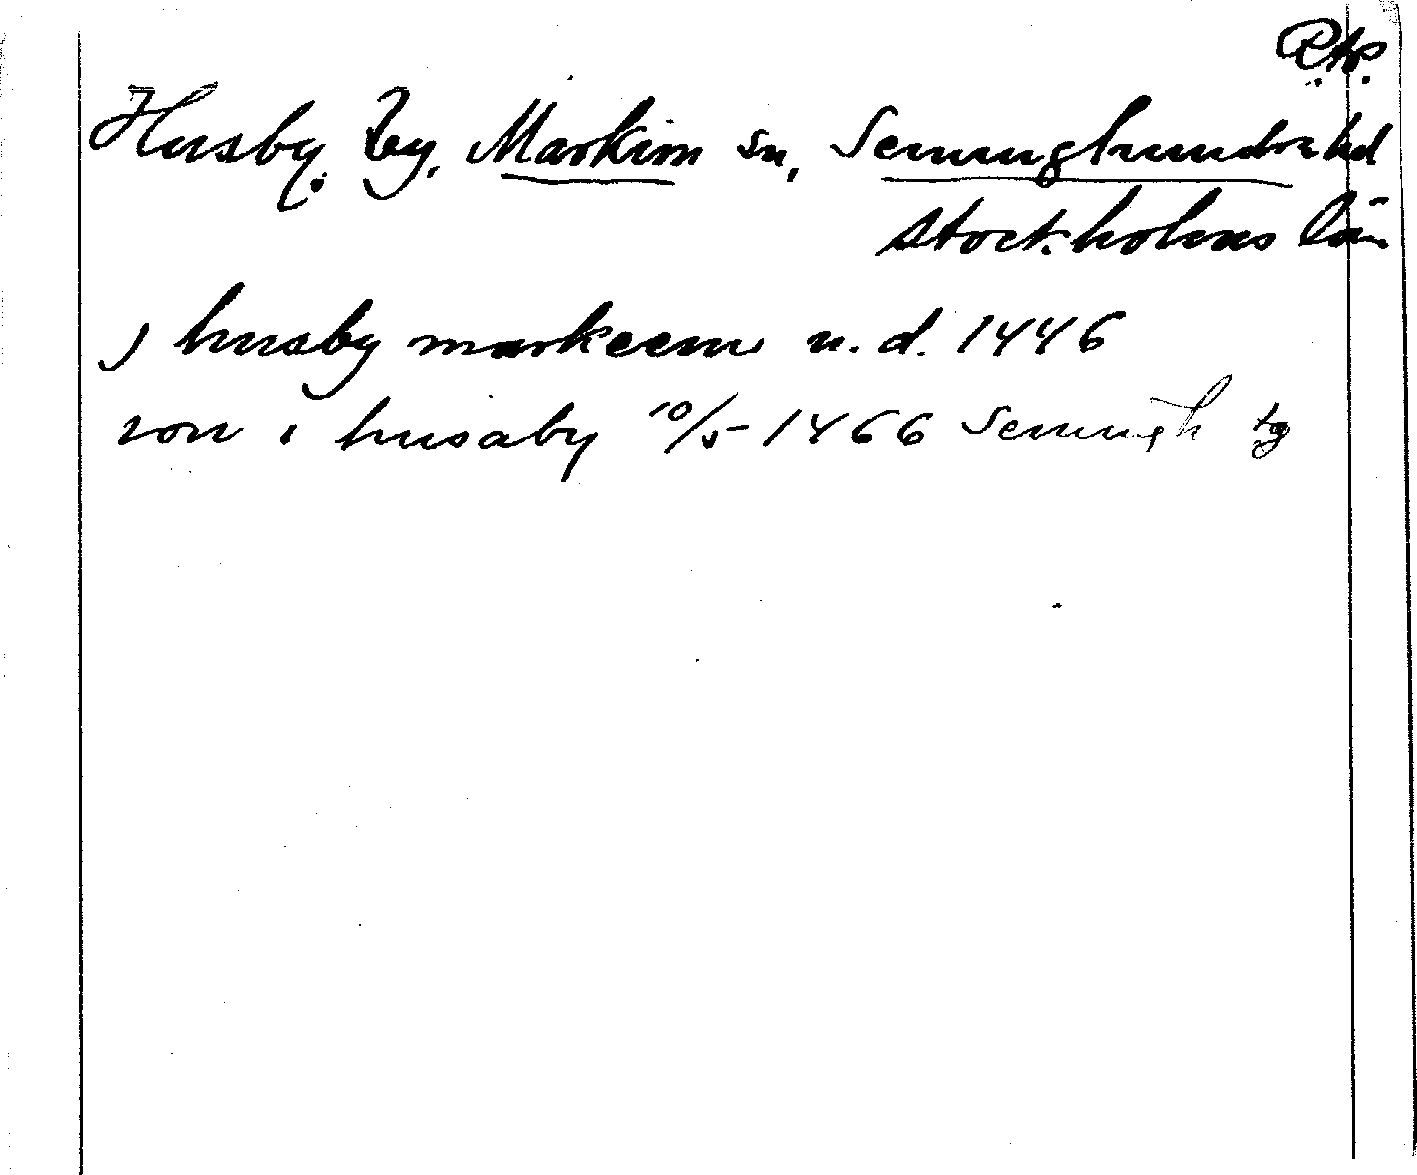 P.tp.
Husby, by, Markim sn, Seminghundra hd
Stockholms län
J husby markeem u.d. 1446
i husaby 10/5 1466 Seminghr tg